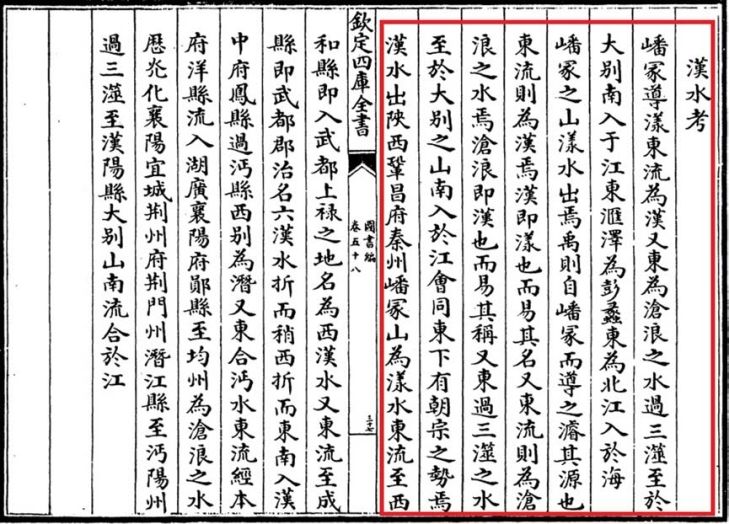 漢水考
嶓冢導漾東流為漢又東為滄浪之水過三澨至於
大别南入于江東滙澤為彭蠡東為北江入於海
嶓冢之山漾水出焉禹則自嶓冢而導之濬其源也
東流則為漢焉漢即漾也而易其名又東流則為滄
浪之水焉滄浪即漢也而易其稱又東過三澨之水
至於大别之山南入於江會同東下有朝宗之勢焉
漢水出陜西鞏昌府秦州嶓冢山為漾水東流至西
欽定四庫全書
圖書編
卷五十八
三十七
和縣即入武都上禄之地名為西漢水又東流至成
縣即武都郡治名六漢水折而稍西折而東南入漢
中府鳳縣過沔縣西别為潛又東合沔水東流經本
府洋縣流入湖廣襄陽府鄖縣至均州為滄浪之水
歴光化襄陽宜城荆州府荆門州潛江縣至沔陽州
過三澨至漢陽縣大别山南流合於江